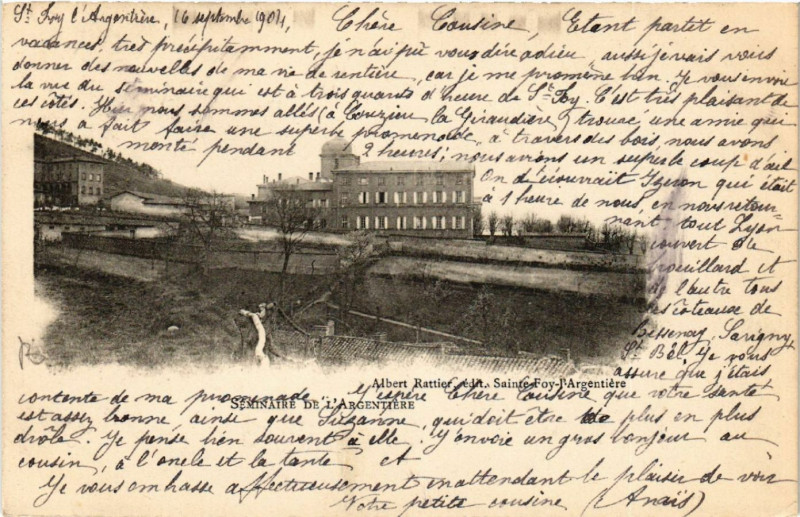 St Foy l'Argentière, 16 septembre 1904, Chère Cousine, Etant partet en
vacances, très précipitamment, je n'ai pu vous dire adieu, aussi je vais vous
donner des nouvelles de ma vie de rentière, car je me promène bien. Je vous envoie
la vue du séminaire qui est à trois quarts d'heure de St Foy. C'est très plaisant de
ces côtés. Hier nous sommes allés (à Courzieu la Giraudière) trouver une amie qui
nous a fait faire une superbe promenade, à travers des bois, nous avons
monté pendant 2 heures; nous avions un superbe coup d'œil
On découvrait Yzeron qui était
à 1 heure de nous en nous retour
nant tout Lyon
couvert de
brouillard et
de l'autre tous
les côteaux de
Bessenay, Savigny,
St Bel, Je vous
assure que j'étais
Albert Rattier, édit. Sainte-Foy-l'Argentière
contente de ma promenade. J'espère Chère Cousine que votre santé
SÉMINAIRE DE L'ARGENTIÈRE
est assez bonne, ainsi que Suzanne, qui doit être de plus en plus
drôle. Je pense bien souvent à elle. J'envoie un gros bonjour au
cousin, à l'oncle et la tante et
Je vous embrasse affectueusement en attendant le plaisir de vous voir
Votre petite cousine (Anaïs)